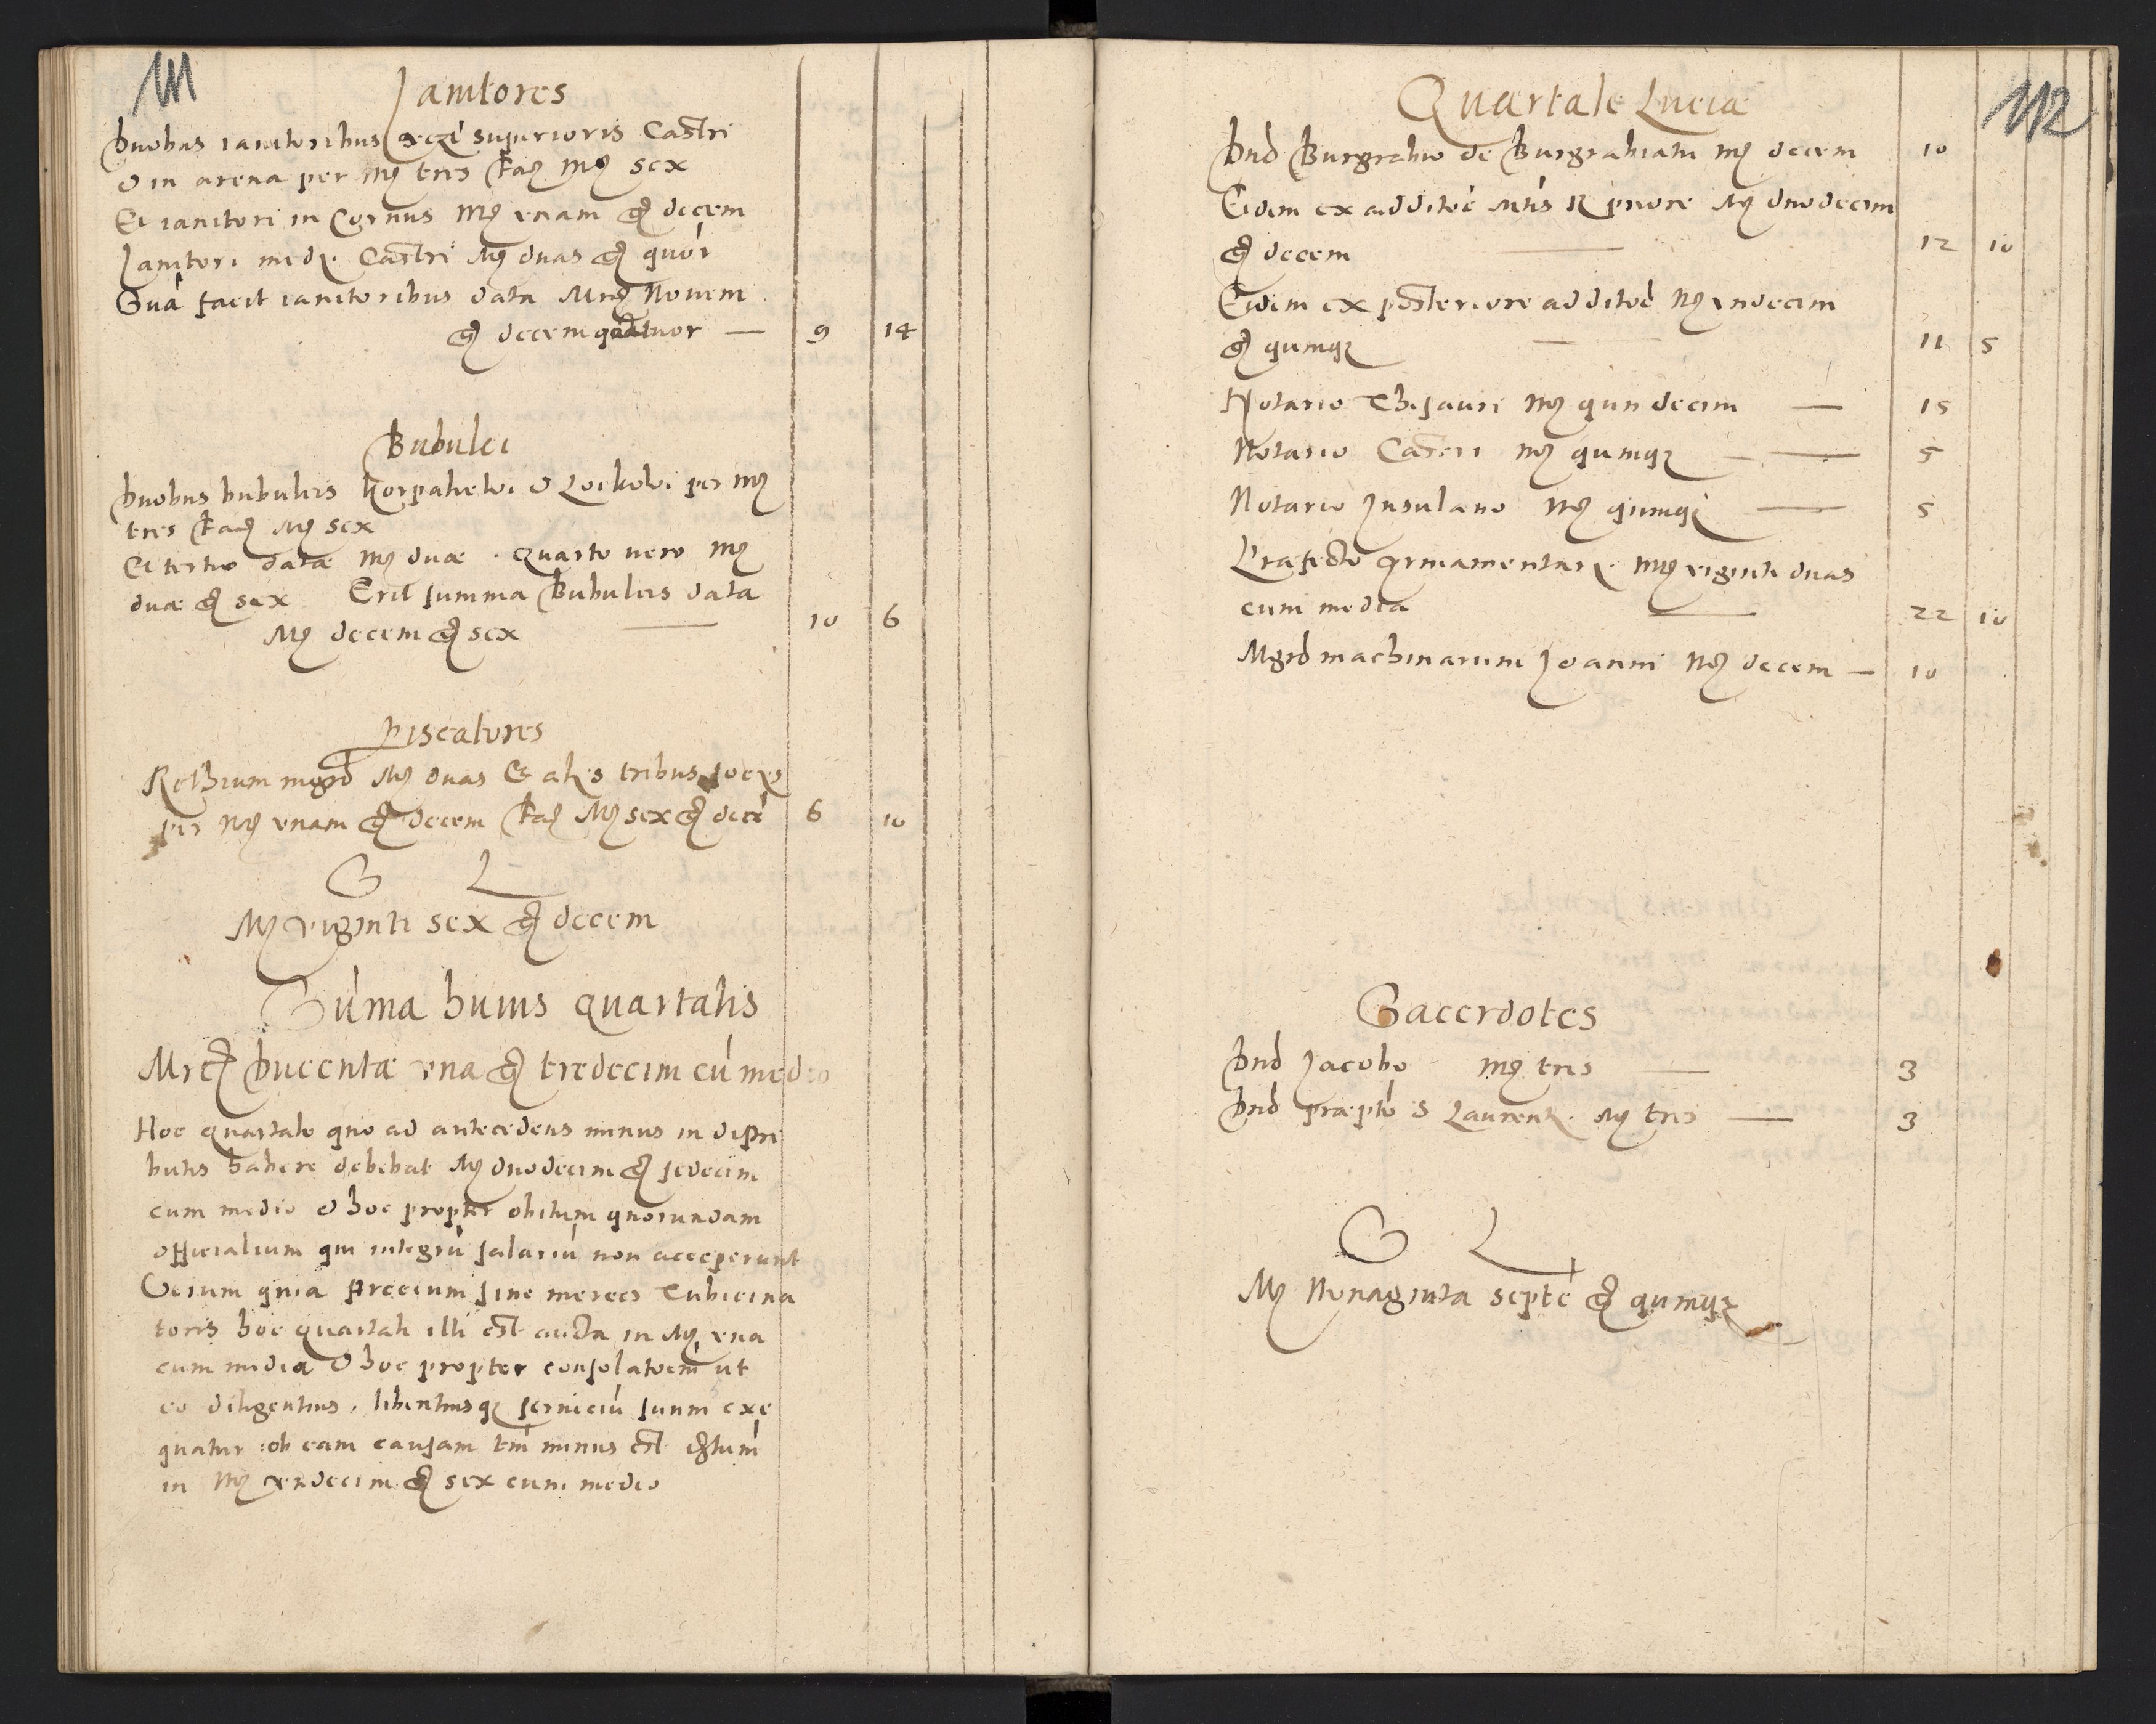 111
Janitores
Duobus ianitoribus superioris Castri
& in arena per mc̃ tres fac̃ Mc̃ sex
Et ianitori in Cornus Mc̃ vnam gͬ decem
Janitori mediͤ Castri Mc̃ duas gͬ quo᷑r
Su᷑a facit ianitoribus data Mrc̃ Nouem
gͬ decem quatuor — 9 14
Bubulci
Duobus bubulcis & per mc̃
tres fac̃ Mc̃ sex
Et tertio datæ Mc̃ duæ . quarto uero Mc̃
duæ gͬ sex Erit summa Bubulcis data
Mc̃ decem gͬ sex — 10 6
Piscatores
Rethium mgrõ Mc̃ duas & alijs tribus socijs
per Mc̃ vnam gͬ decem fac̃ Mc̃ sex gͬ dece᷑ 6 10
S L
Mc̃ viginti sex gͬ decem
Su᷑ma huius quartalis
Mrc̃ Ducentæ vna gͬ tredecim cu᷑ medio
Hoc quartale quo ad antecedens minus in distri
butis habere debebat Mc̃ duodecim gͬ sedecim
cum medio & hoc propter obitum quorundam
officialium qui integru᷑ salariu᷑ non acceperunt
Verum quia precium siue merces Tubicina
toris hoc quartali illi est aucta in Mc̃ vna
cum media & hoc propter consolatoem᷑ ut
eo diligentius, libentiusqꝫ seruiciu᷑ suum exe
quatur ob eam causam tm᷑ minus est
in Mc̃ vndecim gͬ sex cum medio
112
Quartale Luciæ
Dnõ Burgrabio de Burgrabiatu Mc̃ decem 10
Eidem ex additoẽ Mtis R priore Mc̃ duodecim
gͬ decem — 12 10
Eidem ex posteriore additoẽ Mc̃ vndecim
gͬ quinqꝫ — 11 5
Notario Thesauri Mc̃ quindecim — 15
Notario Castri Mc̃ quinqꝫ — 5
Notario Insulano Mc̃ quinqꝫ — 5
Præfecto armamentariͤ Mc̃ viginti duas
cum media — 22 10
Mgrõ machinarum Joanni Mc̃ decem — 10
Sacerdotes
Dnõ Jacobo Mc̃ tres — 3
Dnõ præpto᷑ S Laurentiͤ Mc̃ tres — 3
S L
Mc̃ Nonaginta septe᷑ gͬ quinqꝫ